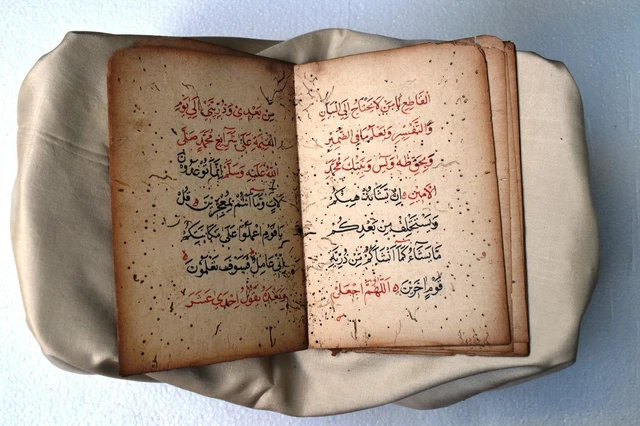 القاطع يا من لا يحتاج الى البيان
والتفسير وتعلم ما في الضمير
وبحق طه ويس وبنبيك محمد
الامين ان يشأ يذهبكم
ويستخلف من بعدكم
ما يشاء كما أنشأكم من ذرية
قوم اخرين اللهم اجعلني
من بعدي وذريتي الى يوم
القيمة على شرائع محمد صلى
الله عليه وسلم انما توعدون
لات وما انتم بمعجزين قل
يا قوم اعملوا على مكانتكم
اني عامل فسوف تعلمون
وبعده يقول احدى عشر